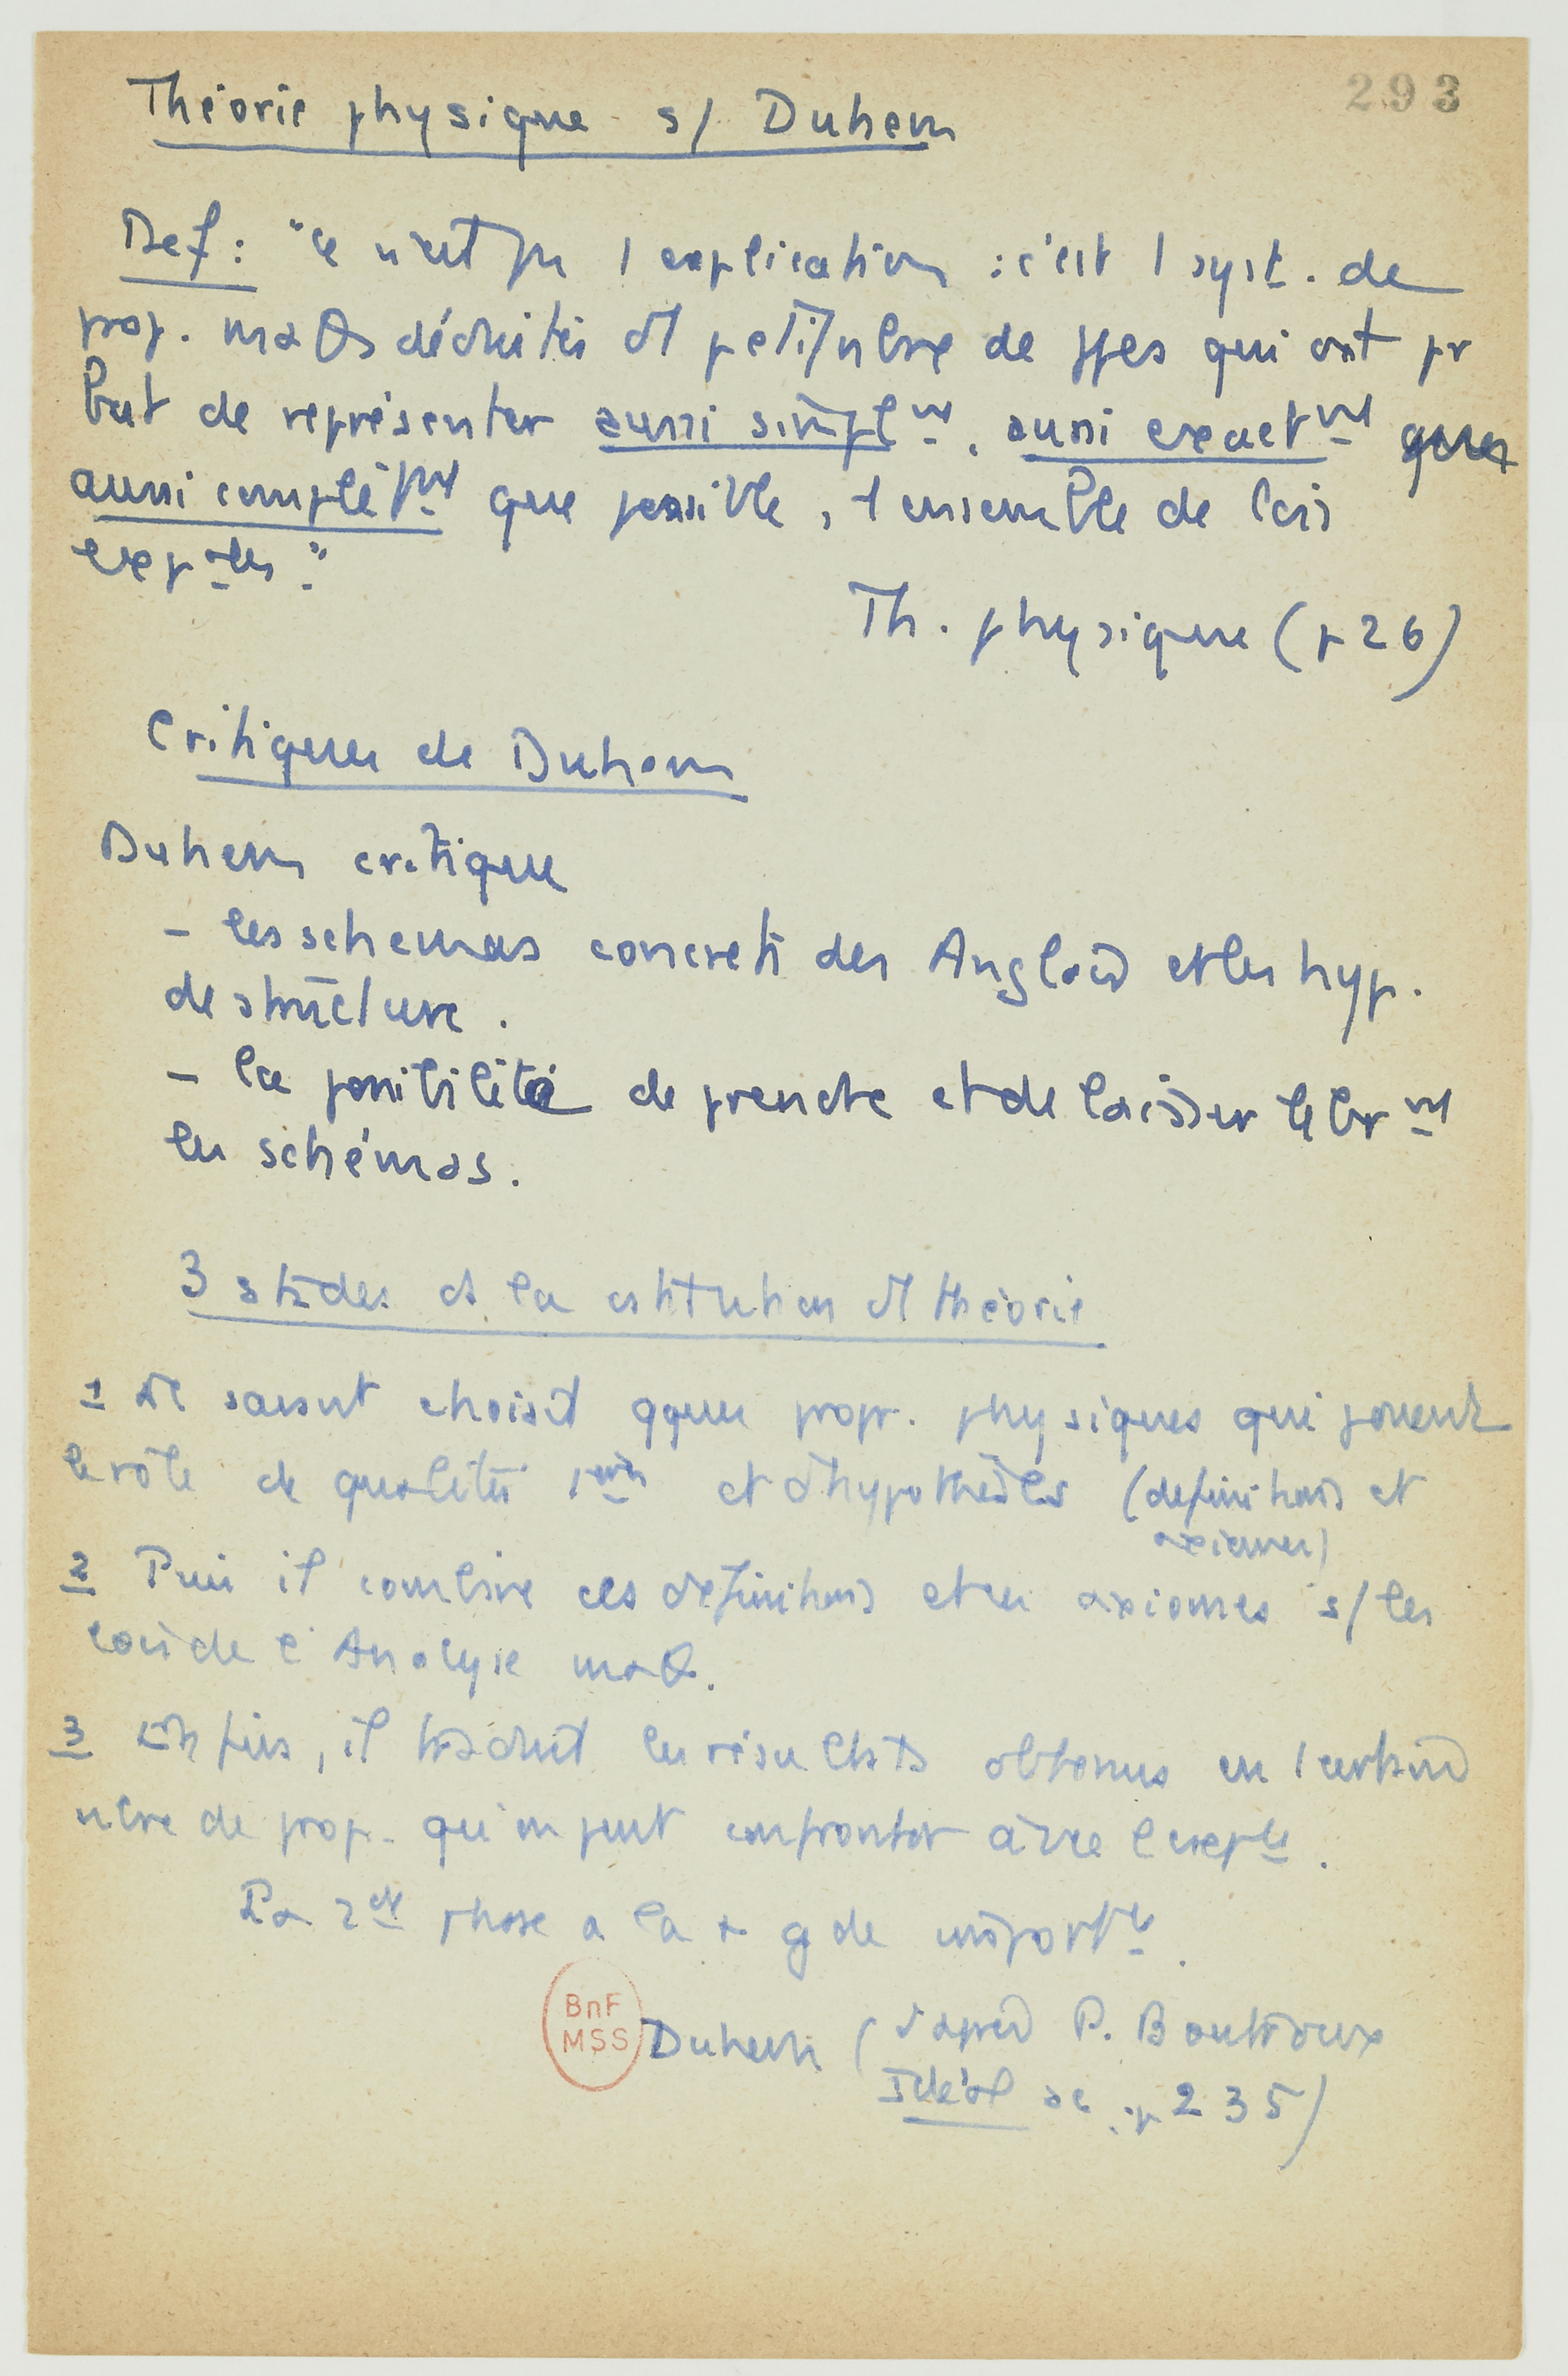 293
Théorie physique s/ Duhem
Def : "ce n'est pas 1 explication : c'est 1 syst. de
prop. maθs déduites d'1 petit nbre de ppes qui ont pr
but de représenter aussi simplmt, aussi exactmt
aussi complètmt que possible, 1 ensemble de lois
exptales."
Th. physique (p 26)
Critiques de Duhem
Duhem critique
- les schemas concrets des Anglais et les hyp.
de structure.
- la possibilité de prendre et de laisser librmt
les schémas.
3 stades ds la cstitution d'1 théorie
1 Le savant choisit qques propr. physiques qui jouent
le rôle de qualités 1ères et d'hypothèses (definitions et
axiomes)
2 Puis il combine ces définitions et ces axiomes s/ les
lois de l'Analyse maθ.
3 Enfin, il traduit les résultats obtenus en 1 certain
nbre de prop. qu'on peut confronter avec l'expce.
La 2de phase a la + gde importce.
BnF
MSS
Duhem (d'après P. Boutroux
Idéal sc. p 235)